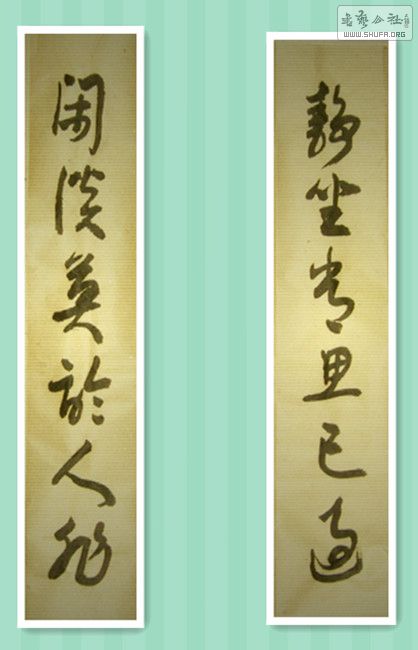 書藝公社
WWW.SHUFA.ORG
靜坐常思己過
閑談莫論人非